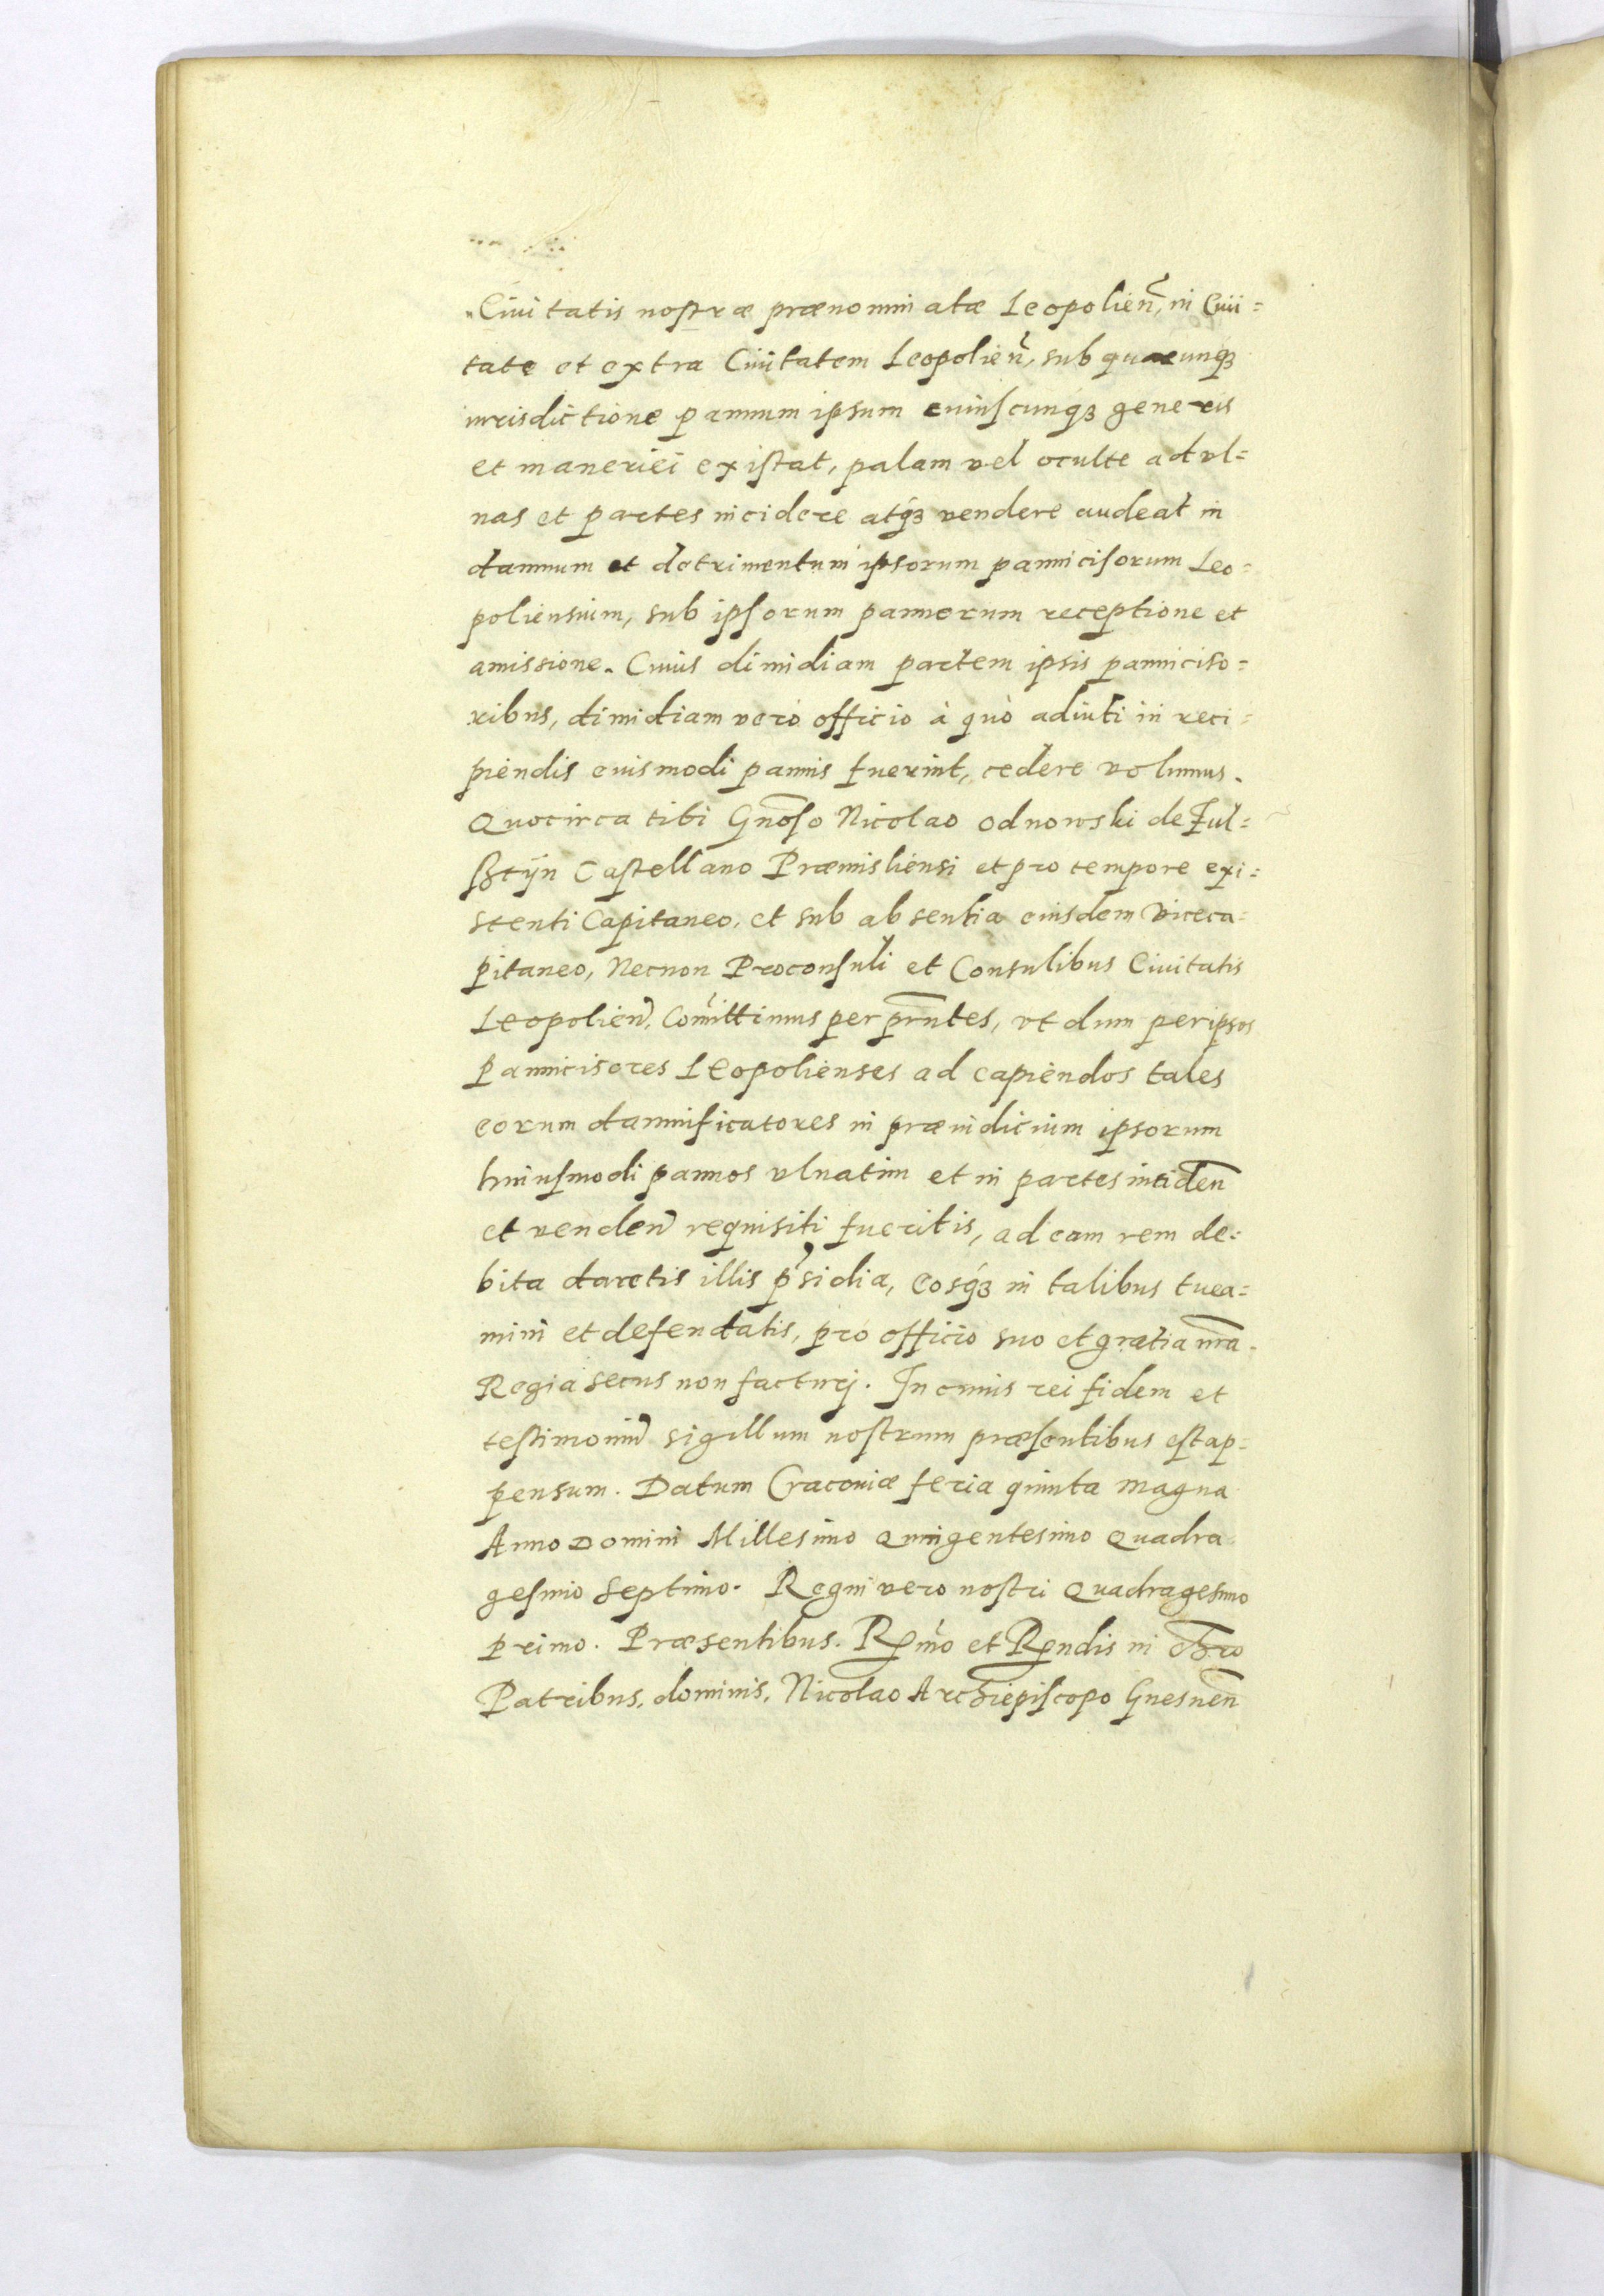 Ciuitatis nostræ prænominatæ Leopolien̄, in Ciui=
tate et extra Ciuitatem Leopolien̄, sub quacunqꝫ
iurisdictione pannum ipsum cuiuscunqꝫ generis
et maneriei existat, palam vel oculte ad vl=
nas et partes incidere atqꝫ vendere audeat in
damnum et detrimentum ipsorum pannicisorum Leo=
poliensium, sub ipsorum pannorum receptione et
amissione. Cuius dimidiam partem ipsis panniciso=
ribus, dimidiam verò officio à quò adiuti in reci=
piendis euismodi pannis fuerint, cedere volumus.
Quocirca tibi Gn̄oso Nicolao Odnowski de Ful=
sztÿn Castellano Præmisliensi et pro tempore exi=
stenti Capitaneo, et sub absentia eiusdem Viceca=
pitaneo, Necnon Proconsuli et Consulibus Ciuitatis
Leopolien̄, Com̄ittimus per pn̄tes, vt dum per ipsos
Pannicisores Leopolienses ad capiendos tales
eorum damnificatores in præiudicium ipsorum
huiusmodi pannos vlnatim et in partes inciden̄
et venden̄ requisiti fueritis, ad eam rem de=
bita daretis illis p̄sidia, Eosqꝫ in talibus tuea=
mini et defendatis, pro officio suo et gratia nr̄a
Regia secus non facturj. In cuius rei fidem et
testimoniū sigillum nostrum præsentibus est ap=
pensum. Datum Cracouiæ feria quinta magna
Anno Domini Millesimo Quingentesimo Quadra
gesimo Septimo. Regni vero nostri Quadragesimo
primo. Præsentibus. Rm̄o et Rn̄dis in Chr̄o
Patribus, dominis, Nicolao Archiepiscopo Gnesnen̄